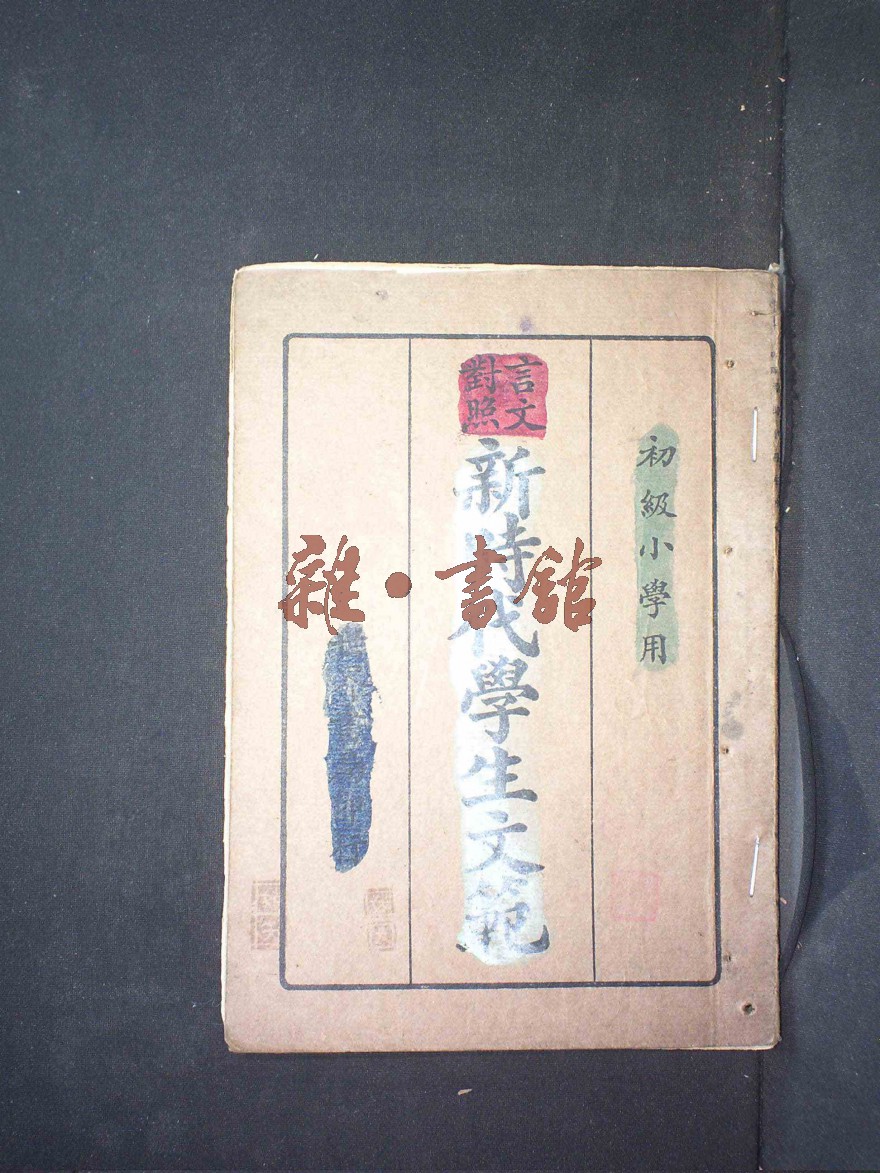 初級小學用
言文
對照
新時代學生文範
雜·書館